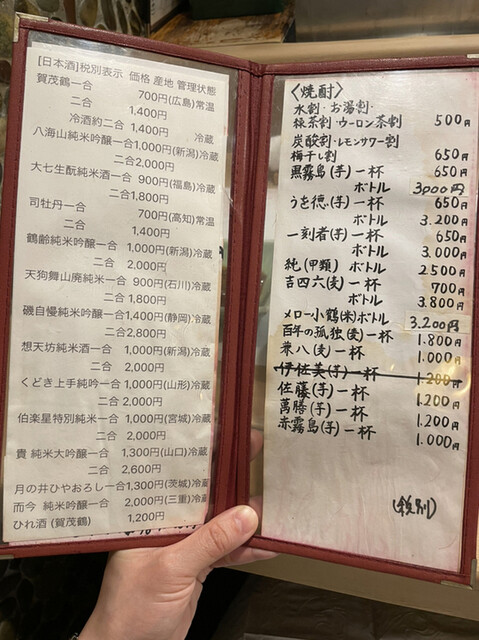 [日本酒]税別表示 価格 産地 管理状態
賀茂鶴一合 700円(広島)常温
二合 1,400円
冷酒約二合 1,400円 冷蔵
八海山純米吟醸一合1,000円(新潟)冷蔵
二合2,000円
大七生酛純米酒一合 900円(福島)冷蔵
二合1,800円
司牡丹一合 700円(高知)常温
二合 1,400円
鶴齢純米吟醸一合 1,000円(新潟)冷蔵
二合 2,000円
天狗舞山廃純米一合 900円(石川)冷蔵
二合 1,800円
磯自慢純米吟醸一合1,400円(静岡)冷蔵
二合2,800円
想天坊純米酒一合 1,000円(新潟)冷蔵
二合 2,000円
くどき上手純吟一合 1,000円(山形)冷蔵
二合 2,000円
伯楽星特別純米一合 1,000円(宮城)冷蔵
二合 2,000円
貴 純米大吟醸一合 1,300円(山口)冷蔵
二合 2,600円
月の井ひやおろし一合1,300円(茨城)冷蔵
而今 純米吟醸一合 2,000円(三重)冷蔵
ひれ酒 (賀茂鶴) 1,200円
〈焼酎〉
水割・お湯割・
緑茶割・ウーロン茶割 500円
炭酸割・レモンサワー割
梅干し割 650円
黒霧島(芋)一杯 650円
ボトル 3000円
うを徳(芋)一杯 650円
ボトル 3.200円
一刻者(芋)一杯 650円
ボトル 3.000円
純(甲類)ボトル 2500円
吉四六(麦)一杯 700円
ボトル 3.800円
メロー小鶴(米)ボトル 3.200円
百年の孤独(麦)一杯 1.800円
兼八(麦)一杯 1.000円
伊佐美(芋)一杯 1.200円
佐藤(芋)一杯 1.200円
萬膳(芋)一杯 1.200円
赤霧島(芋)一杯 1.000円
(税別)